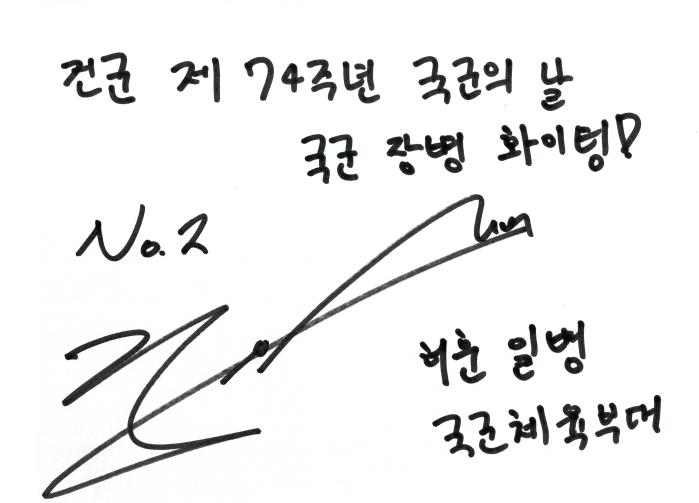 건군 제 74주년 국군의 날
국군 장병 화이팅!
No. 2
허훈 일병
국군체육부대